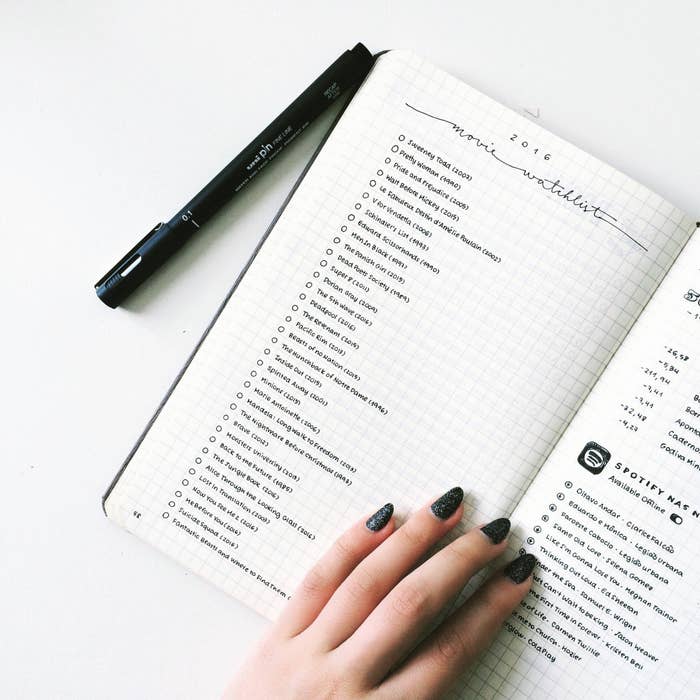 uni pin FINE LINE
0.1
2016
movie watchlist
Sweeney Todd (2007)
Pretty Woman (1990)
Pride and Prejudice (2005)
Walt Before Mickey (2015)
Le Fabuleux Destin d'Amélie Poulain (2002)
V for Vendetta (2006)
Schindler's List (1993)
Edward Scissorhands (1990)
Men In Black (1997)
The Danish Girl (2015)
Dead Poets Society (1989)
Super 8 (2011)
Dorian Gray (2009)
The 5th Wave (2016)
Deadpool (2016)
The Revenant (2015)
Pacific Rim (2013)
Beasts of no Nation (2015)
The Hunchback of Notre Dame (1996)
Inside Out (2015)
Spirited Away (2001)
Minions (2015)
Marie Antoinette (2006)
Mandela: Long Walk to Freedom (2013)
The Nightmare Before Christmas (1993)
Brave (2012)
Monsters University (2013)
Back to the Future (1985)
The Jungle Book (2016)
Alice Through the Looking Glass (2016)
Lost In Translation (2003)
Now You See Me 2 (2016)
Me Before You (2016)
Suicide Squad (2016)
Fantastic Beasts and Where to Find Them (
-26,58
-5,34
-211,94
-3,41
-7,41
-82,48
-4,29
SPOTIFY NAS N
Available Offline
Oitavo Andar - Clarice Falcão
Eduardo e Mônica - Legião Urbana
Faroeste Caboclo - Legião Urbana
Same Old Love - Selena Gomez
Like I'm Gonna Lose You - Meghan Trainor
Thinking Out Loud - Ed Sheeran
the Sea - Samuel E. Wright
Just Can't Wait to be King - Jason Weaver
First Time in Forever - Kristen Bell
of Life - Carmen Twillie
me to Church - Hozier
- Coldplay